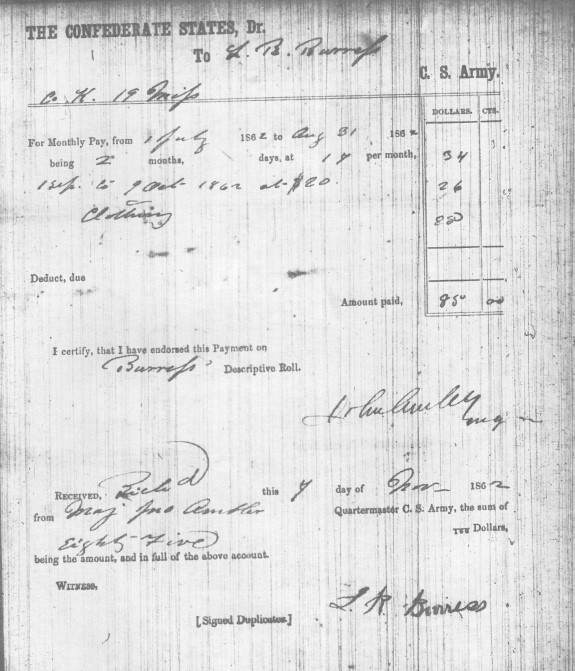 THE CONFEDERATE STATES, Dr.
To L. B. Burress
C. S. Army.
Co. K. 19 Miss
DOLLARS. CTS.
For Monthly Pay, from 1 July 1862 to Aug 31 1862
being 2 months, days, at 17 per month, 34
1 Sep. to 9 Oct 1862 at $20 26
Clothing 25
Deduct, due
Amount paid, 85 00
I certify, that I have endorsed this Payment on
Burress' Descriptive Roll.
RECEIVED, Richd this 7 day of Nov 1862
from Maj Jno Ambler Quartermaster C. S. Army, the sum of
Eighty Five Dollars,
being the amount, and in full of the above account.
WITNESS,
L. R. Burress
[Signed Duplicates.]